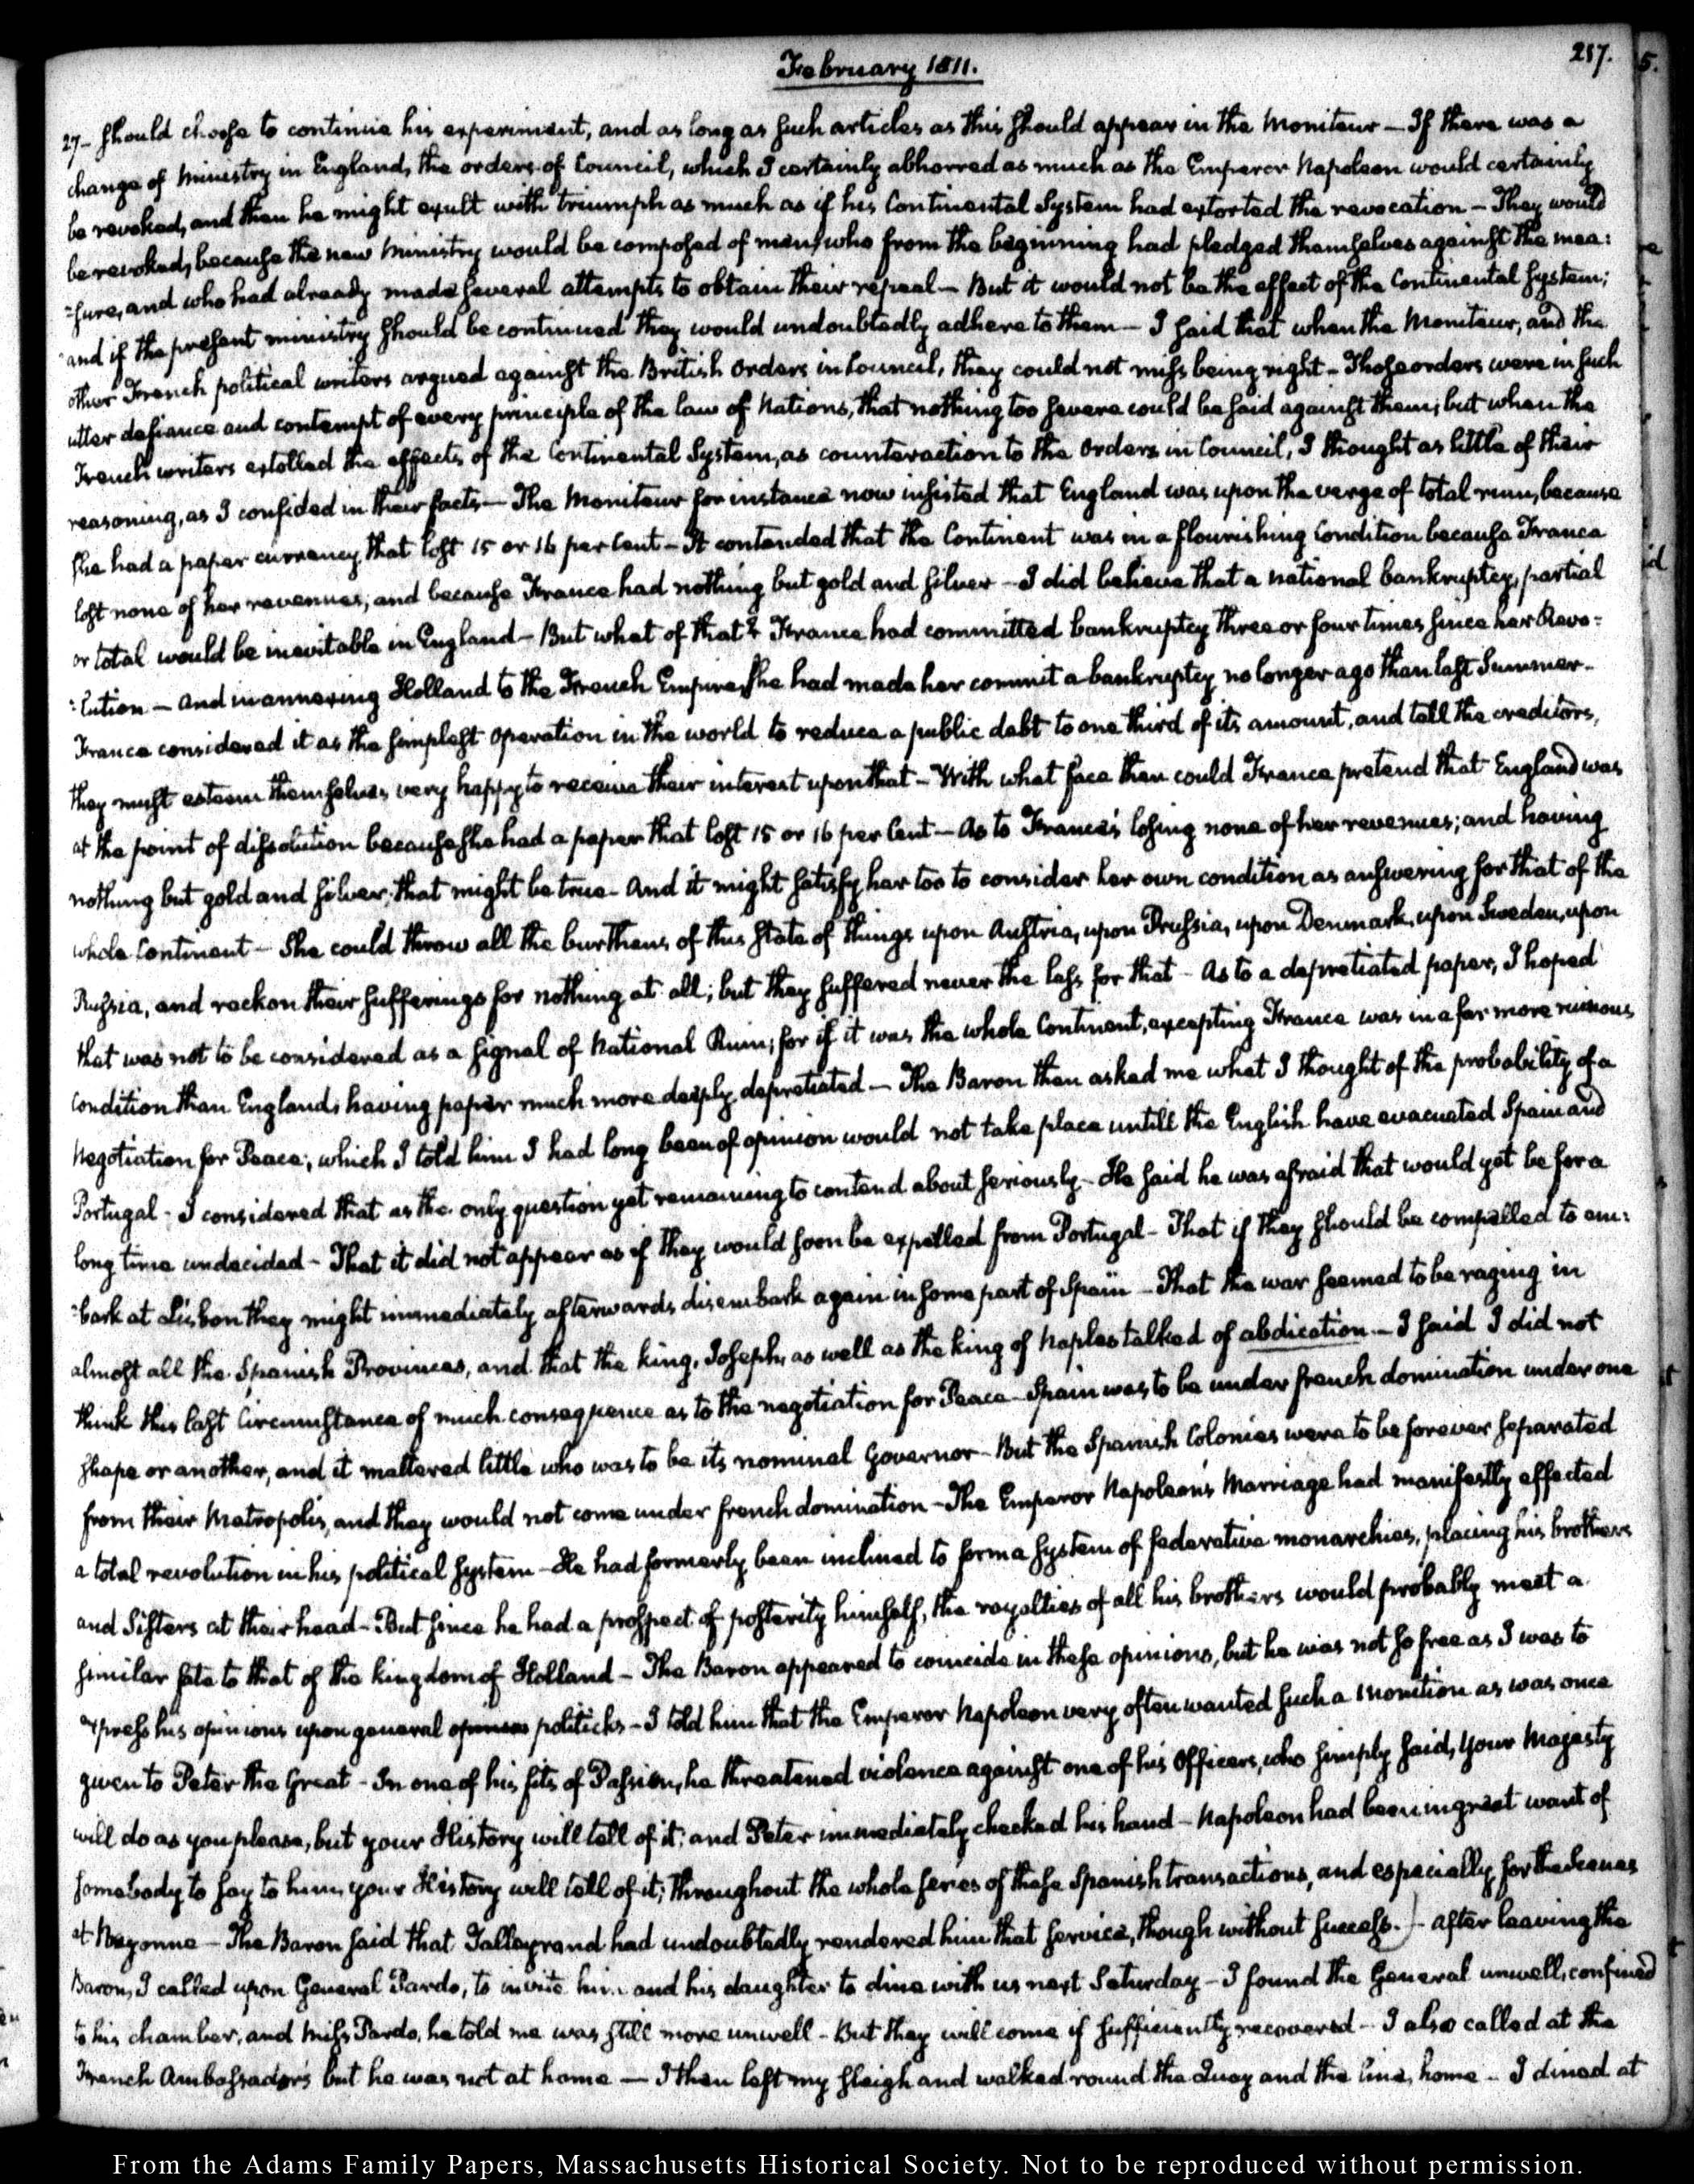 February 1811.
257.
5.
27- should choose to continue his experiment, and as long as such articles as this should appear in the Moniteur — If there was a
change of Ministry in England, the orders of Council, which I certainly abhorred as much as the Emperor Napoleon would certainly
be revoked, and then he might exult with triumph as much as if his Continental System had extorted the revocation — They would
be revoked, because the new Ministry would be composed of men, who from the beginning had pledged themselves against the mea:
:sure, and who had already made several attempts to obtain their repeal — But it would not be the effect of the Continental System;
and if the present ministry should be continued they would undoubtedly adhere to them — I said that when the Moniteur, and the
other French political writers argued against the British Orders in Council, they could not miss being right — Those orders were in such
utter defiance and contempt of every principle of the law of Nations, that nothing too severe could be said against them; but when the
French writers extolled the effects of the Continental System, as counteraction to the Orders in Council, I thought as little of their
reasoning, as I confided in their facts — The Moniteur for instance now insisted that England was upon the verge of total ruin, because
she had a paper currency that lost 15 or 16 per Cent — It contended that the Continent was in a flourishing Condition because France
lost none of her revenues; and because France had nothing but gold and silver — I did believe that a national bankruptcy, partial
or total would be inevitable in England — But what of that? France had committed bankruptcy three or four times since her Revo:
:lution — And in annexing Holland to the French Empire, she had made her commit a bankruptcy no longer ago than last Summer.
France considered it as the simplest operation in the world to reduce a public debt to one third of its amount, and tell the creditors,
they must esteem themselves very happy to receive their interest upon that — With what face then could France pretend that England was
at the point of dissolution because she had a paper that lost 15 or 16 per Cent — As to France's losing none of her revenues; and having
nothing but gold and silver, that might be true — And it might satisfy her too to consider her own condition as answering for that of the
whole Continent — She could throw all the burthens of this state of things upon Austria, upon Prussia, upon Denmark, upon Sweden, upon
Russia, and reckon their sufferings for nothing at all; but they suffered never the less for that — As to a depretiated paper, I hoped
that was not to be considered as a signal of National Ruin; for if it was the whole Continent, excepting France was in a far more ruinous
Condition than England; having paper much more deeply depretiated — The Baron then asked me what I thought of the probability of a
Negotiation for Peace; which I told him I had long been of opinion would not take place untill the English have evacuated Spain and
Portugal — I considered that as the only question yet remaining to contend about seriously — He said he was afraid that would yet be for a
long time undecided — That it did not appear as if they would soon be expelled from Portugal — That if they should be compelled to em:
:bark at Lisbon they might immediately afterwards disembark again in some part of Spain — That the war seemed to be raging in
almost all the Spanish Provinces, and that the king, Joseph, as well as the king of Naples talked of abdication — I said I did not
think this last Circumstance of much consequence as to the negotiation for Peace — Spain was to be under french domination under one
shape or another, and it mattered little who was to be its nominal Governor — But the Spanish Colonies were to be forever separated
from their Metropolis, and they would not come under french domination — The Emperor Napoleon's Marriage had manifestly effected
a total revolution in his political system — He had formerly been inclined to form a system of federative monarchies, placing his brothers
and Sisters at their head — But since he had a prospect of posterity himself, the royalties of all his brothers would probably meet a
similar fate to that of the kingdom of Holland — The Baron appeared to coincide in these opinions, but he was not so free as I was to
express his opinions upon general politicks — I told him that the Emperor Napoleon very often wanted such a monition as was once
given to Peter the Great — In one of his fits of Passion, he threatened violence against one of his Officers, who simply said, Your Majesty
will do as you please, but your History will tell of it; and Peter immediately checked his hand — Napoleon had been in great want of
somebody to say to him, your History will tell of it; throughout the whole series of these Spanish transactions, and especially for the scenes
at Bayonne — The Baron said that Talleyrand had undoubtedly rendered him that service, though without success.) — After leaving the
Baron, I called upon General Pardo, to invite him and his daughter to dine with us next Saturday — I found the General unwell, confined
to his chamber, and Miss Pardo, he told me was still more unwell — But they will come if sufficiently recovered — I also called at the
French Ambassador's but he was not at home — I then left my sleigh and walked round the Quay and the line, home — I dined at
From the Adams Family Papers, Massachusetts Historical Society. Not to be reproduced without permission.